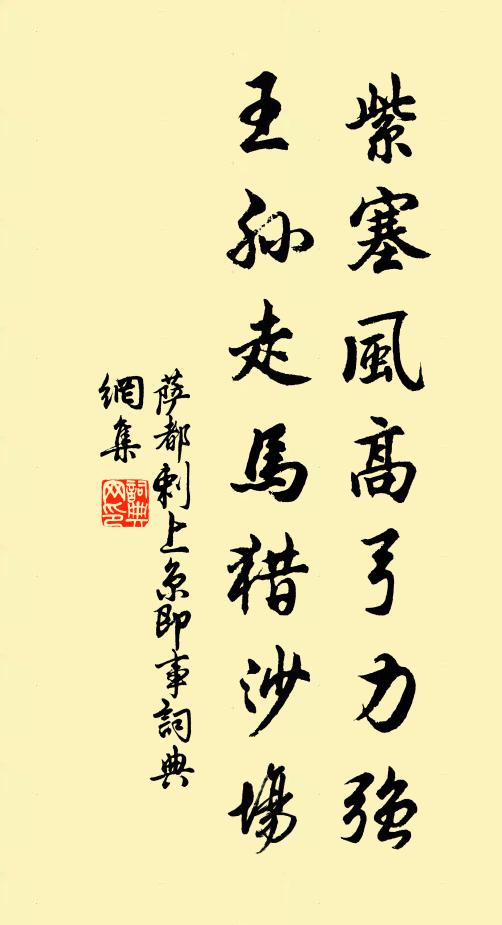 紫塞風高弓力強
王孙走馬猎沙場
薩都剌上京即事詞典
網集
詞典網印